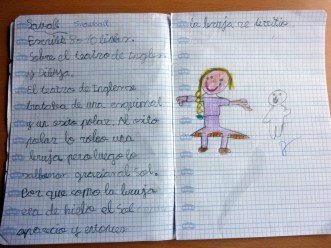 Escribe 8o 10 lídas.
Sobre el teatro de Ingles
y dibuja.
El teatro de Inglenes
trataba de una esquimal
y un osito polar. Al osito
polar lo robo una
bruja pero luego lo
salbaron gracias al sol.
Por que como la bruja
era de hielo el sal
aparecio y entonces
la bruja se deritio.